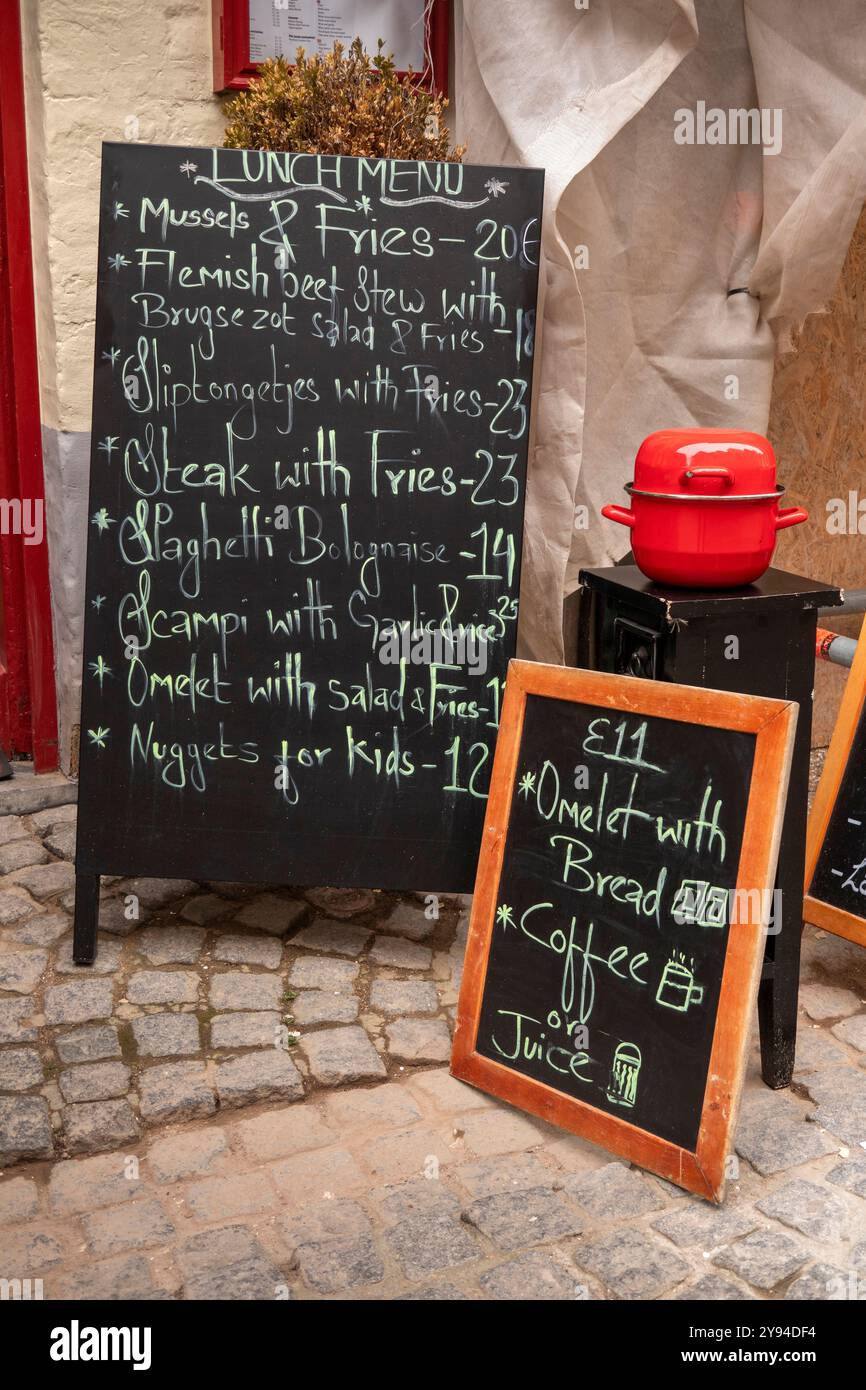 LUNCH MENU
* Mussels & Fries - 20€
* Flemish beef Stew with
Brugse zot salad & Fries - 18
* Sliptongetjes with Fries - 23
* Steak with Fries - 23
* Spaghetti Bolognaise - 14
* Scampi with Garlic & rice 25
* Omelet with salad & Fries -
* Nuggets for kids - 12
£11
* Omelet with
Bread
* Coffee
or
Juice
alamy
alamy
Image ID: 2Y94DF4
www.alamy.com